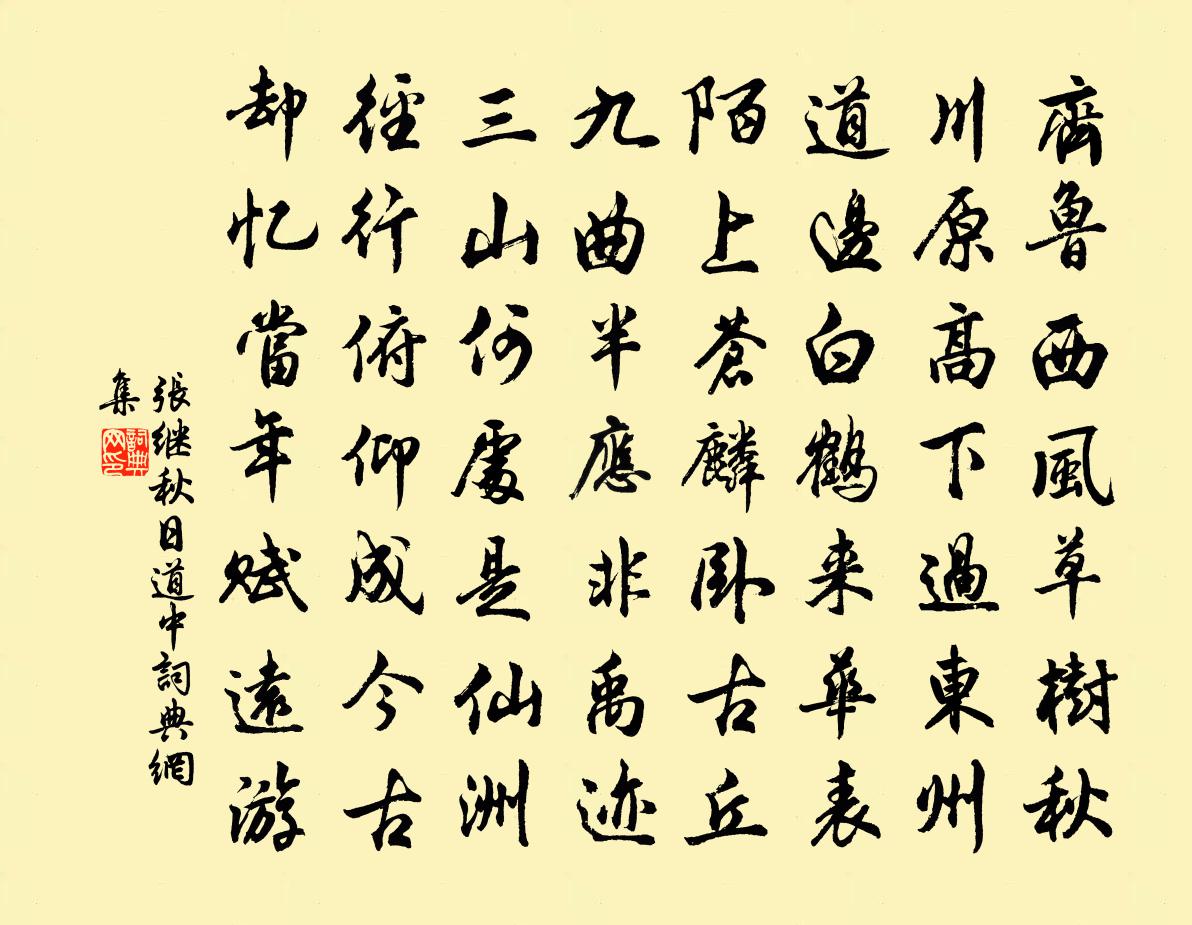 齊魯西風草樹秋
川原高下過東州
道邊白鶴来華表
陌上蒼麟臥古丘
九曲半應非禹迹
三山何處是仙洲
徑行俯仰成今古
却忆當年賦遠游
張继秋日道中詞典網
集
詞典
网印